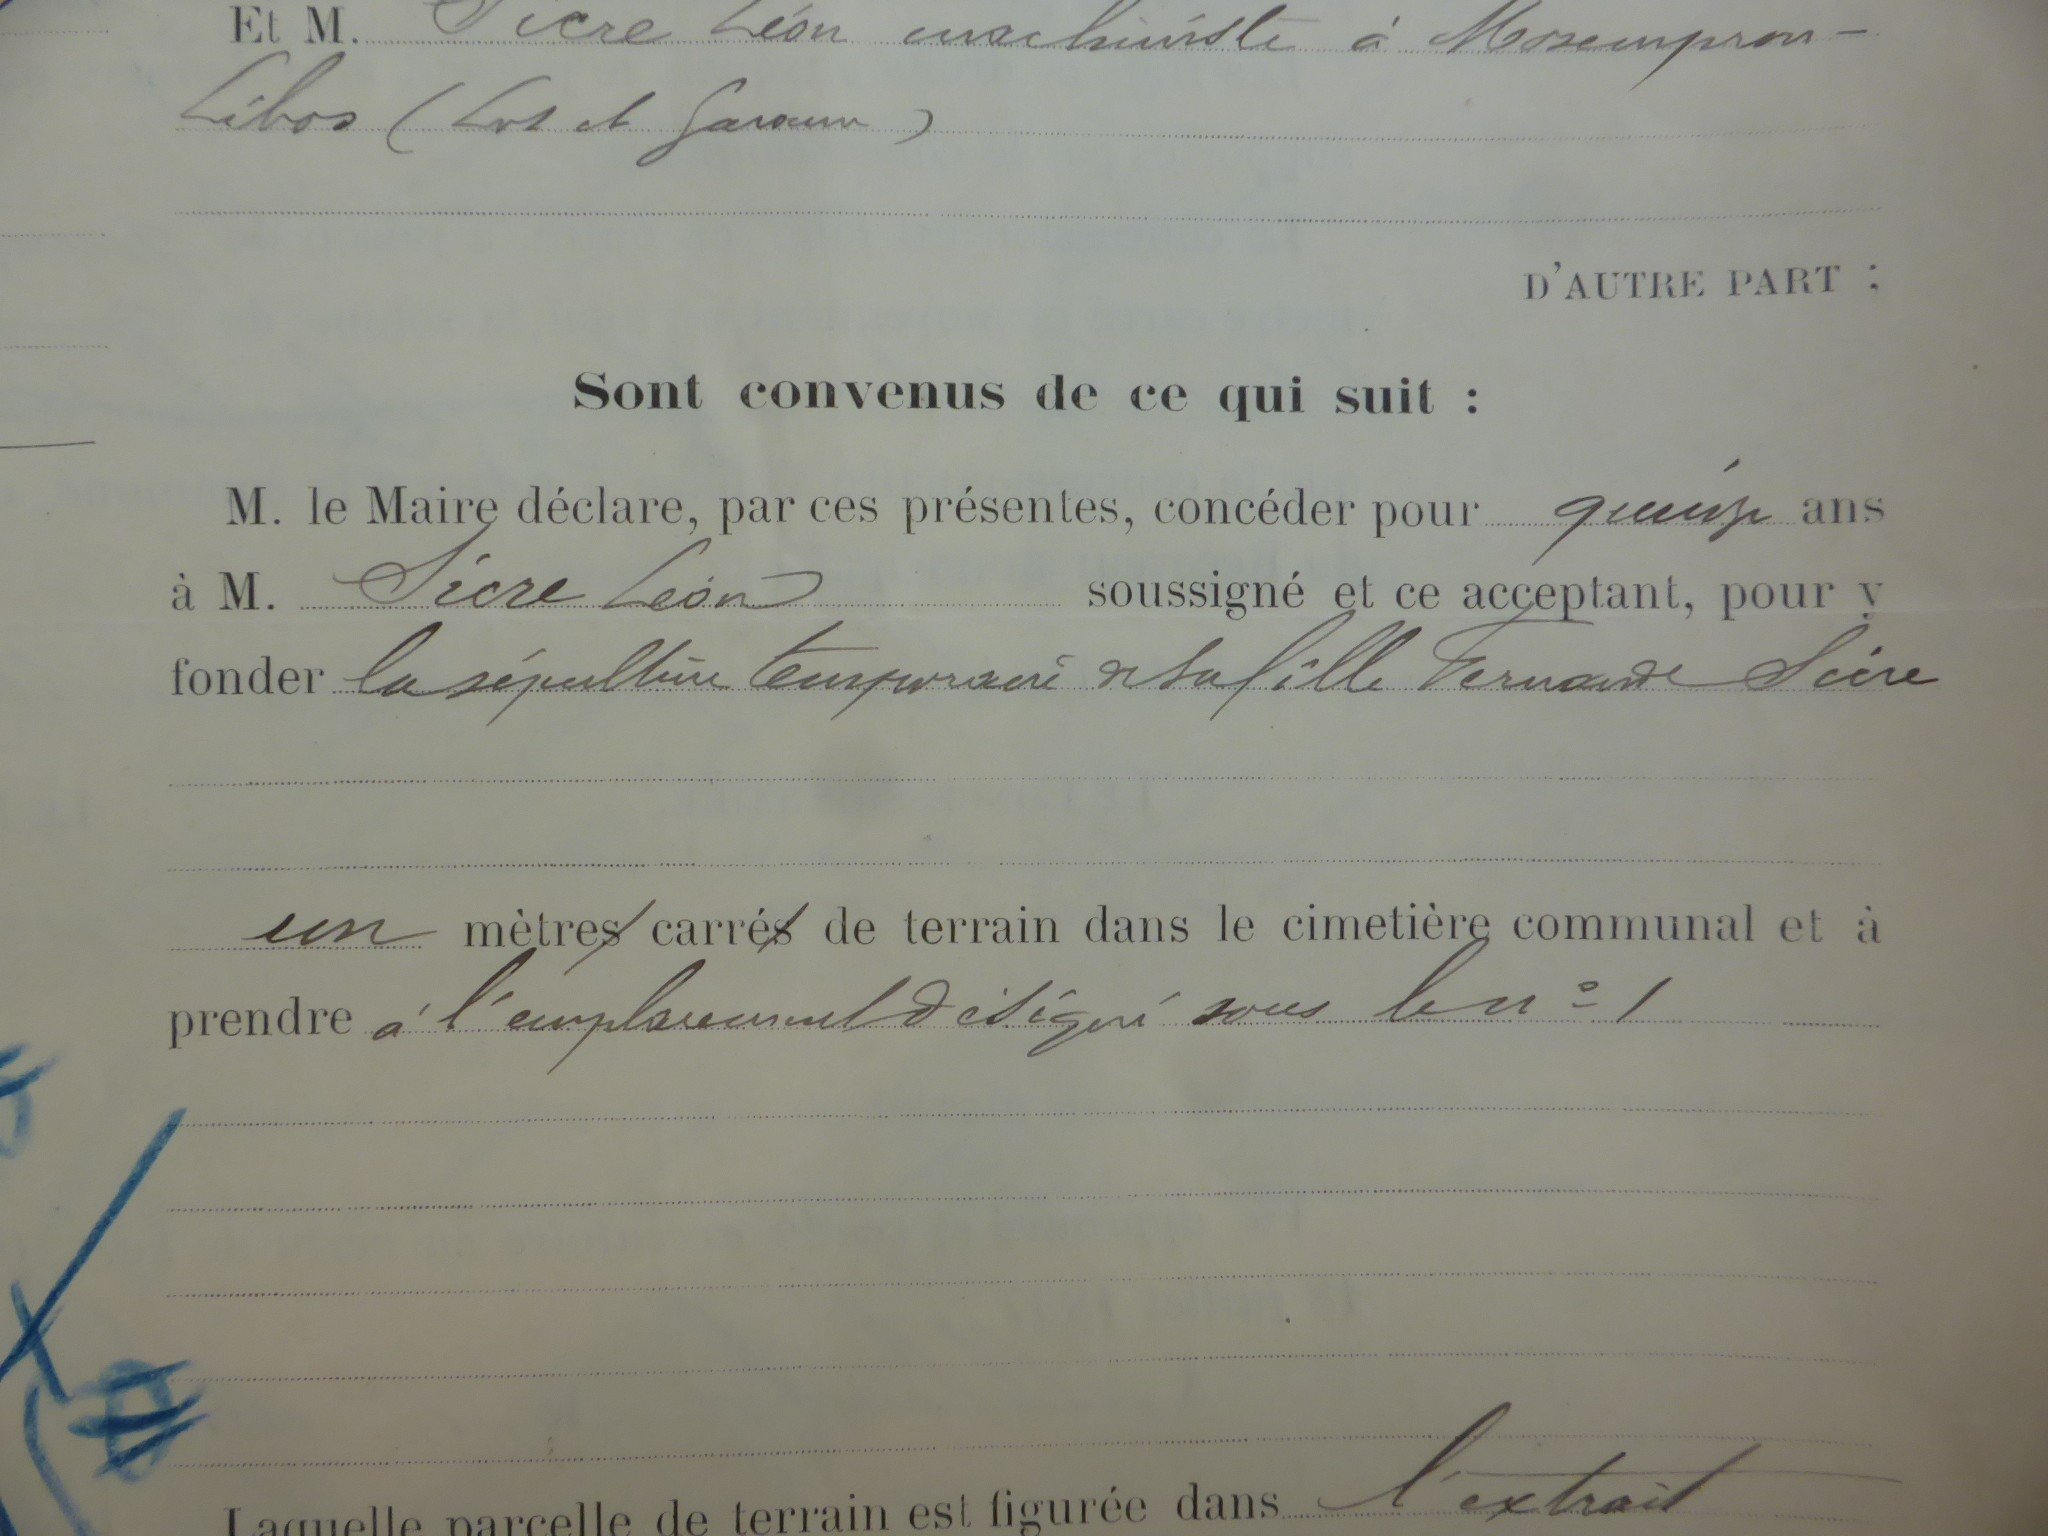 Et M. Sicre Léon machiniste à Monsempron-
Libos (Lot et Garonne)
D'AUTRE PART :
Sont convenus de ce qui suit :
M. le Maire déclare, par ces présentes, concéder pour quinze ans
à M. Sicre Léon soussigné et ce acceptant, pour y
fonder la sépulture temporaire de sa fille Fernande Sicre
un mètres carrés de terrain dans le cimetière communal et à
prendre à l'emplacement désigné sous le n° 1
Laquelle parcelle de terrain est figurée dans l'extrait